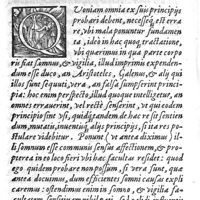 QVoniam omnia ex suis principijs
probari debent, necesse est erra
re, vbi mala ponuntur fundamen
ta, ideò in hac quoq; tractatione,
vbi quærimus in qua parte corpo
ris fiat somnus, & vigilia, illud imprimis expenden-
dum esse duco, an Aristoteles, Galenus, & alij qui
illos sunt sequuti, vera, an falsa sumpserint princi-
pia: hoc enim perspecto, illud quoque intelliget, an
omnes errauerint, vel rectè senserint, vt qui eodem
principio sint vsi, quidq; tandem hac de re sit senten
dum, mutatis, inuentisq; alijs principijs, si ita res po-
stulare videbitur. Ponunt (vt antea diximus) il-
li somnum esse communis sensus affectionem, & pro-
pterea in eo loco fieri vbi hæc facultas residet: quod
ego quidem probare non possum, si vera sunt, quæ
antea docuimus, dum efficientes somni causas expli
caremus: ostendimus enim in somno, & vigilia fa-